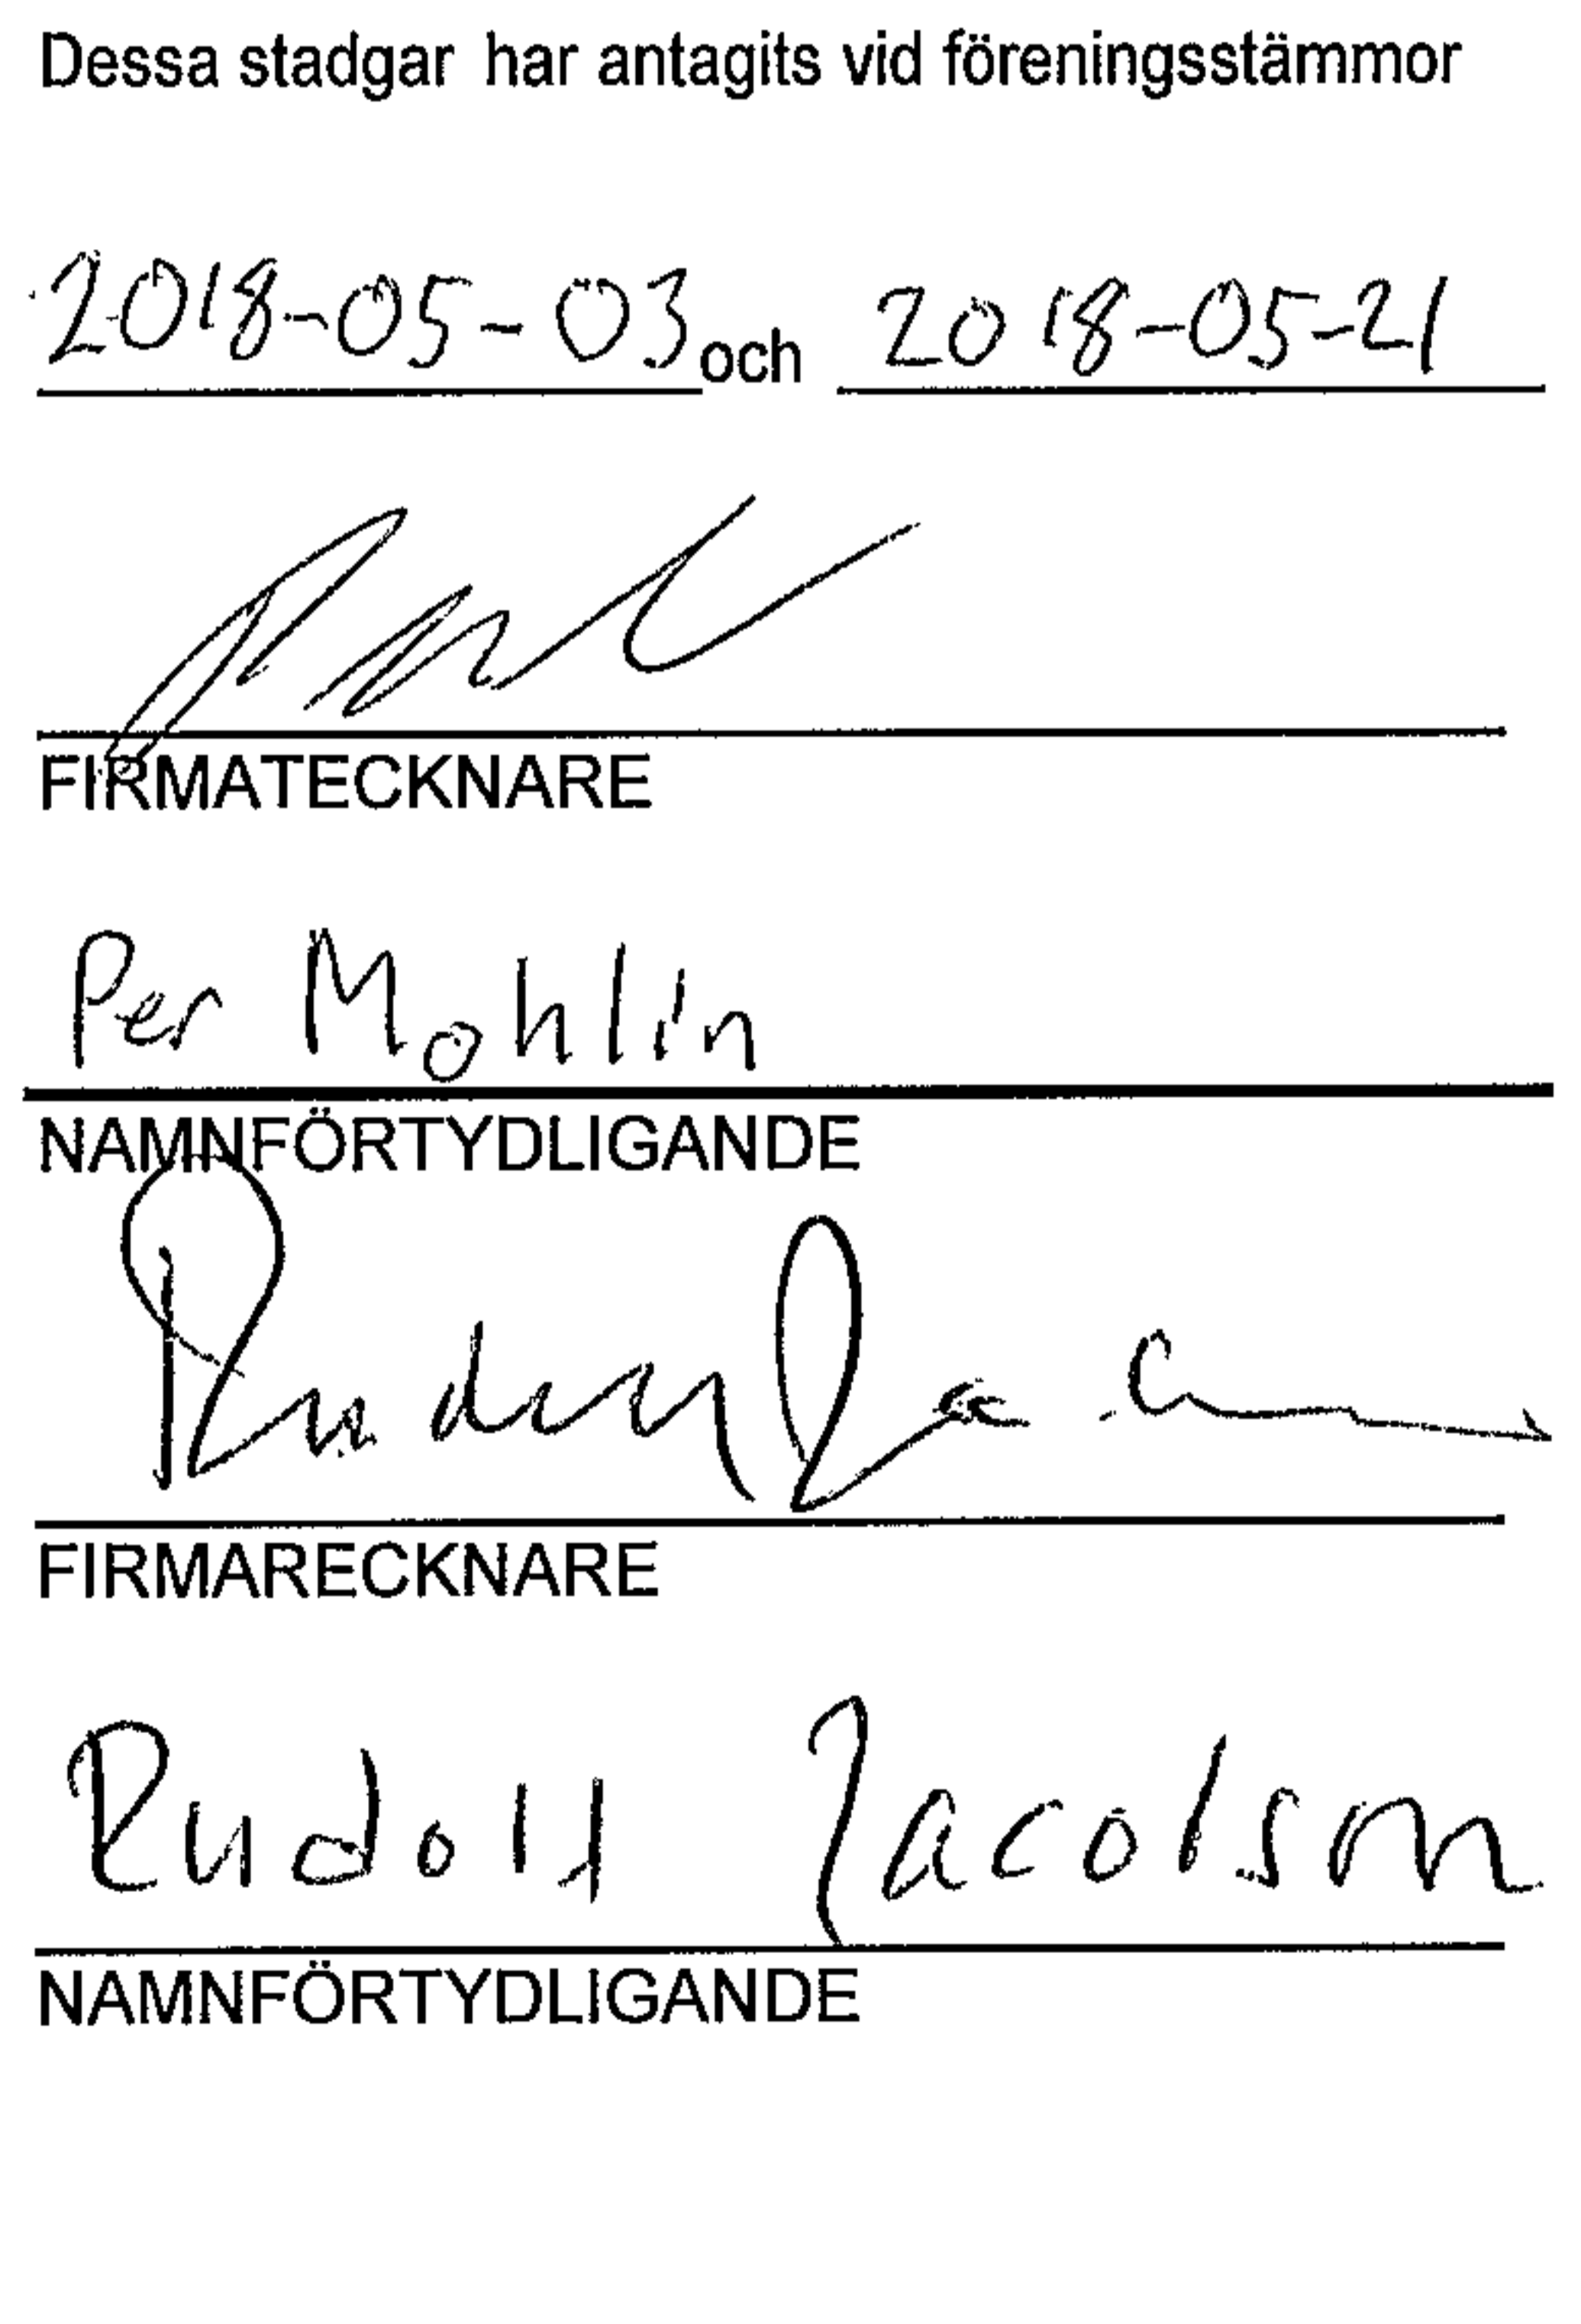 Dessa stadgar har antagits vid föreningsstämmor
2018-05-03 och 2018-05-21
FIRMATECKNARE
Per Mohlin
NAMNFÖRTYDLIGANDE
FIRMARECKNARE
Rudolf Jacobson
NAMNFÖRTYDLIGANDE